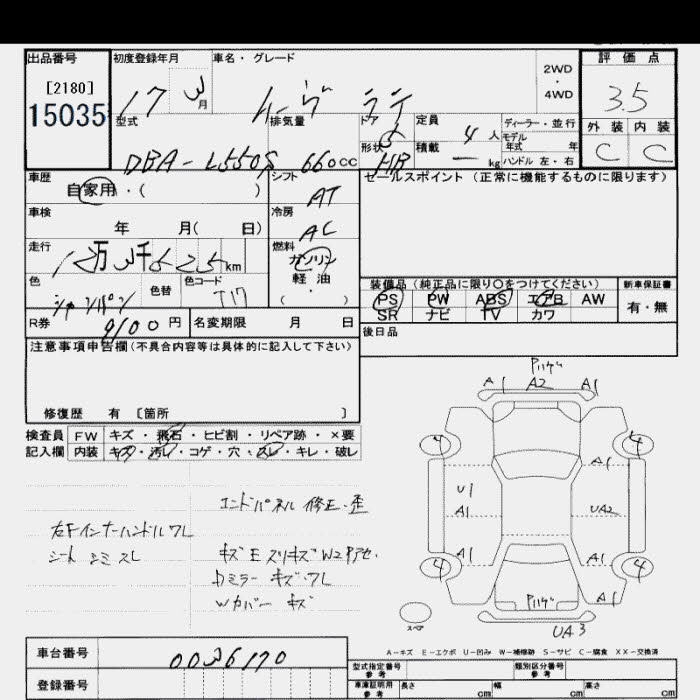 出品番号 初度登録年月 車名・グレード 2WD・4WD 評価点
[2180] 17 3月 ムーヴ ラテ 3.5
15035 型式 排気量 ドア 5 定員 4人 ディーラー・並行 外装 内装
DBA-L550S 660cc 形状 HB 積載 ーkg モデル年式 年 ハンドル 左・右 C C
車歴 自家用・( ) シフト AT セールスポイント (正常に機能するものに限ります)
車検 年 月( 日) 冷房 AC
走行 12万3千525km 燃料 ガソリン 軽油 ・( )
色 シャンパン 色替 色コード T17 装備品(純正品に限り〇をつけてください) 新車保証書
PS PW ABS エアB AW 有・無
R券 9100円 名変期限 月 日 SR ナビ TV カワ
後日品
注意事項申告欄(不具合内容等は具体的に記入して下さい)
修復歴 有 [箇所 ]
検査員 FW キズ・飛石・ヒビ割・リペア跡・×要
記入欄 内装 キズ・汚レ・コゲ・穴・スレ・キレ・破レ
エンドパネル 修正・歪
右Fインナーハンドルワレ
シート シミ スレ
キズ E ズリキズ W2
Dミラー キズ・ワレ
Wカバー キズ
A1 A2 A1
4 4
A1
U1
A1 UA2
A1 A1
4 4
A1
スペア
UA3
A-キズ E-エクボ U-凹み W-補修跡 S-サビ C-腐食 XX-交換済
車台番号 0036170 型式指定番号 参考 類別区分番号 参考
登録番号 車庫証明用 参考 長さ cm 幅 cm 高さ cm